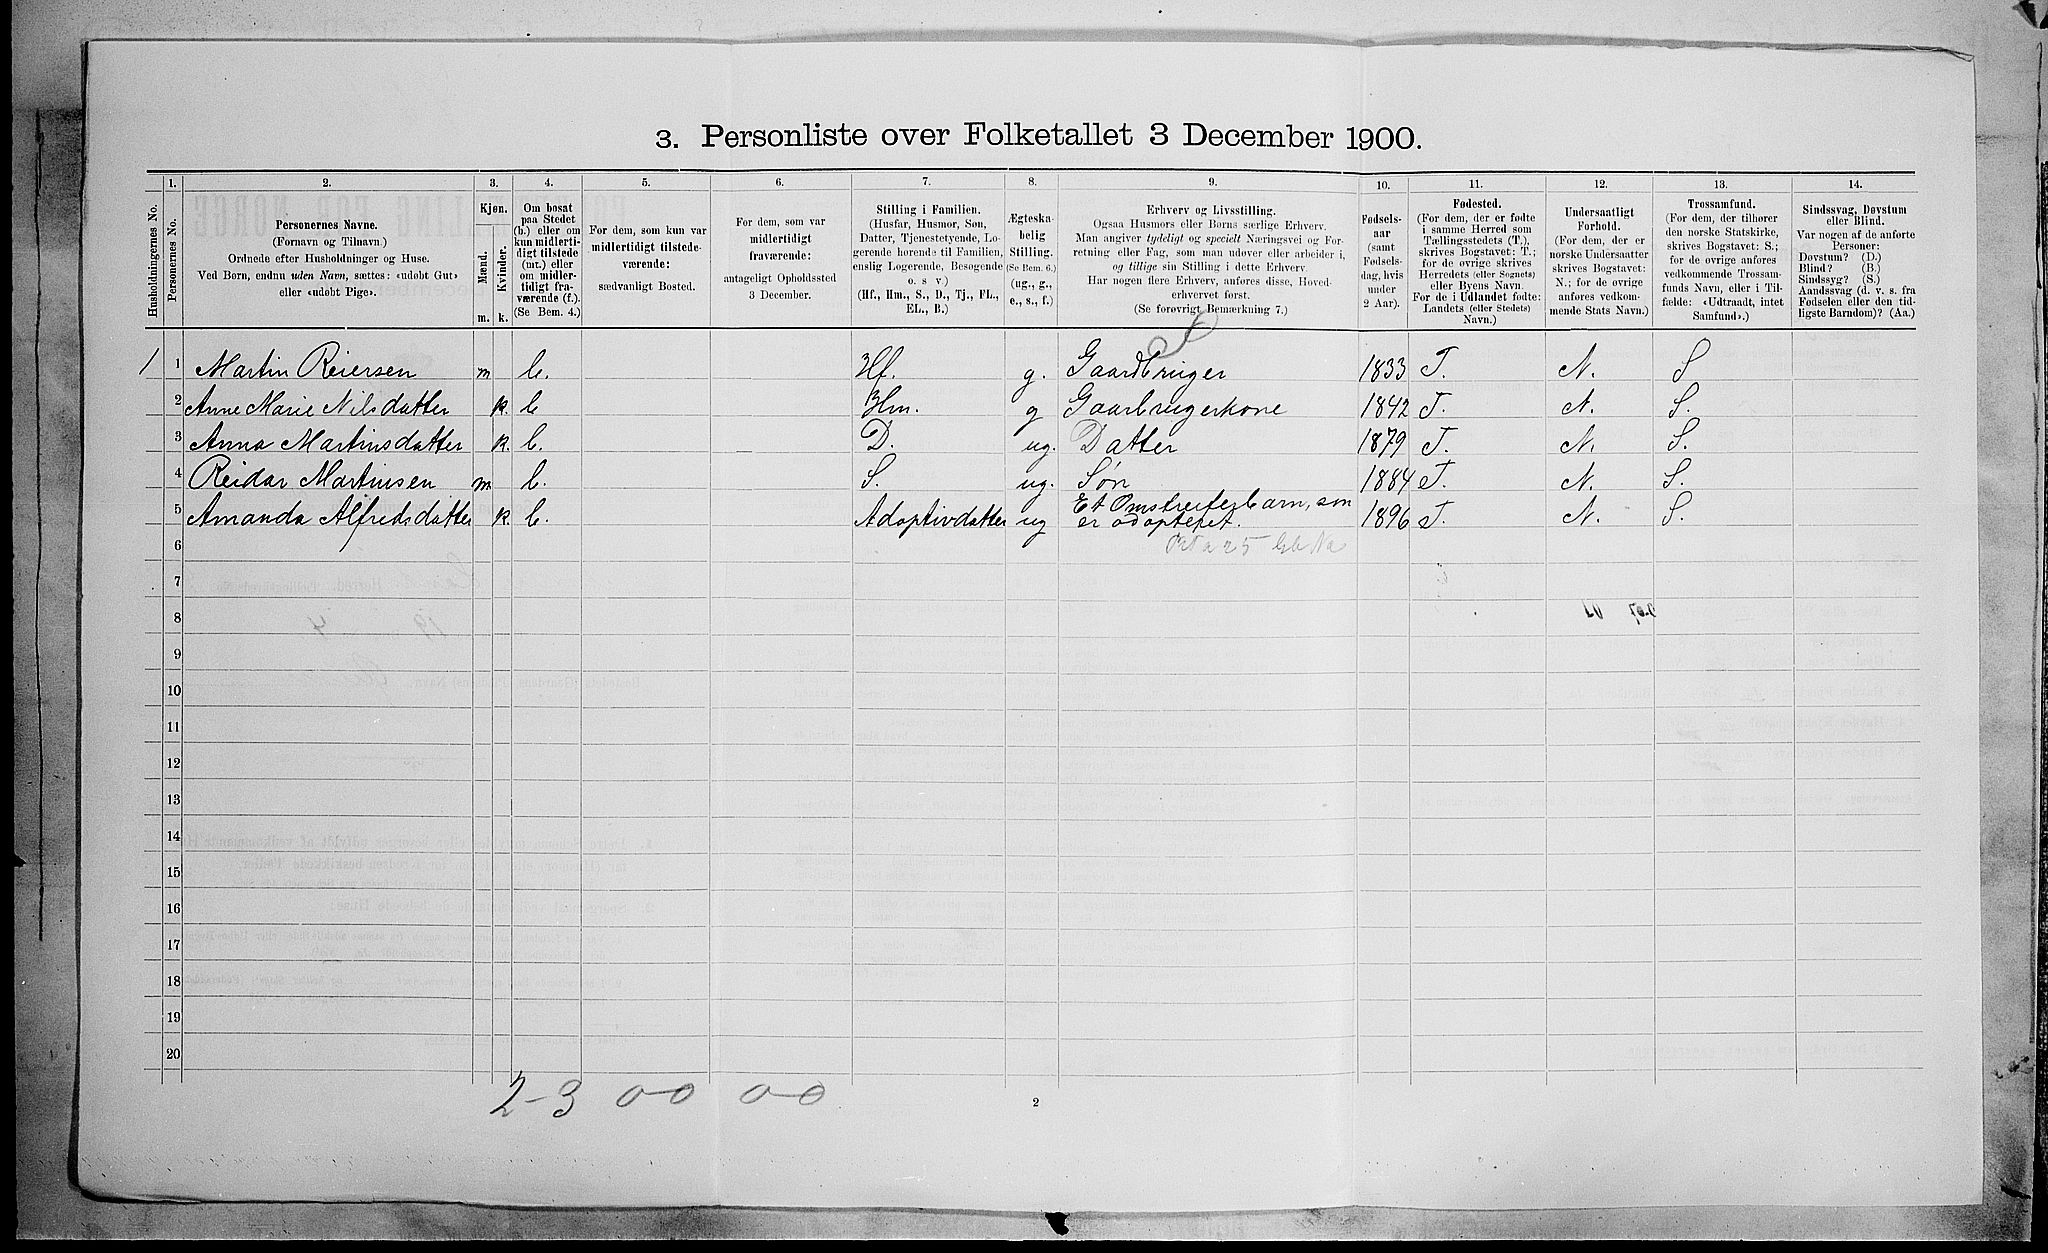 3. Personliste over Folketallet 3 December 1900.
Husholdningernes No.
1.
Personernes No.
2.
Personernes Navne.
(Fornavn og Tilnavn.)
Ordnede efter Husholdninger og Huse.
Ved Børn, endnu uden Navn, sættes: «udøbt Gut»
eller «udøbt Pige».
3.
Kjøn.
Mænd.
Kvinder.
m. k.
4.
Om bosat
paa Stedet
(b.) eller om
kun midlerti-
digt tilstede
(mt.) eller
om midler-
tidigt fra-
værende (f.).
(Se Bem. 4.)
5.
For dem, som kun var
midlertidigt tilstede-
værende:
sædvanligt Bosted.
6.
For dem, som var
midlertidigt
fraværende:
antageligt Opholdssted
3 December.
7.
Stilling i Familien.
(Husfar, Husmor, Søn,
Datter, Tjenestetyende, Lo-
gerende hørende til Familien,
enslig Logerende, Besøgende
o. s. v.)
(Hf., Hm., S., D., Tj., FL.,
EL., B.)
8.
Ægteska-
belig
Stilling.
(Se Bem. 6.)
(ug., g.,
e., s., f.)
9.
Erhverv og Livsstilling.
Ogsaa Husmors eller Børns særlige Erhverv.
Man angiver tydeligt og specielt Næringsvei og For-
retning eller Fag, som man udøver eller arbeider i,
og tillige sin Stilling i dette Erhverv.
Har nogen flere Erhverv, anføres disse, Hoved-
erhvervet først.
(Se forøvrigt Bemærkning 7.)
10.
Fødsels-
aar
(samt
Fødsels-
dag, hvis
under
2 Aar).
11.
Fødested.
(For dem, der er fødte
i samme Herred som
Tællingsstedets (T.),
skrives Bogstavet: T.;
for de øvrige skrives
Herredets (eller Sognets)
eller Byens Navn.
For de i Udlandet fødte:
Landets (eller Stedets)
Navn.)
12.
Undersaatligt
Forhold.
(For dem, der er
norske Undersaatter
skrives Bogstavet:
N.; for de øvrige
anføres vedkom-
mende Stats Navn.)
13.
Trossamfund.
(For dem, der tilhører
den norske Statskirke,
skrives Bogstavet: S.;
for de øvrige anføres
vedkommende Trossam-
funds Navn, eller i Til-
fælde: «Udtraadt, intet
Samfund».)
14.
Sindssvag, Døvstum
eller Blind.
Var nogen af de anførte
Personer:
Døvstum? (D.)
Blind? (B.)
Sindssyg? (S.)
Aandssvag (d. v. s. fra
Fødselen eller den tid-
ligste Barndom)? (Aa.)
1 1 Martin Reiersen m b. Hf. g. Gaardbruger 1833 T. N. S
2 Anne Marie Nilsdatter k. b Hm. g Gaarbrugerkone 1842 T. N. S.
3 Anna Martinsdatter k. b. D. ug. Datter 1879 T. N. S.
4 Reidar Martinsen m b. S. ug. Søn 1884 T. N. S.
5 Amanda Alfredsdatter k. b. Adoptivdatter ug Et Omstreiferbarn, som
er adopteret. 1896 T. N. S.
6
7
8
9
10
11
12
13
14
15
16
17
18
19
20
2-3 0-0 0-0
2